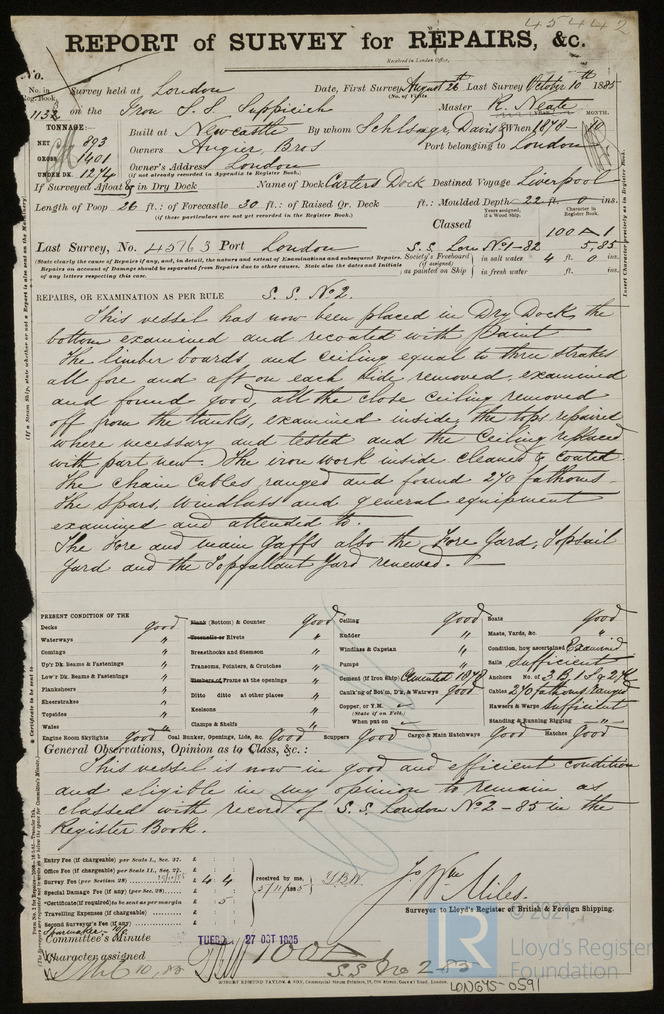 45442
REPORT of SURVEY for REPAIRS, &c.
Received in London Office,
No.
No. in Reg. Book. Survey held at London Date, First Survey August 26th Last Survey October 10th 1885
(No. of Visits
1132 on the Iron S.S. Master R. Neate
TONNAGE:
NET 893 Built at Newcastle By whom Davis & When 1878 - 10 MONTH.
GROSS 1401 Owners Angier Bros Port belonging to London
UNDER DK. 1274 Owner's Address London
(if not already recorded in Appendix to Register Book.)
If Surveyed Afloat & in Dry Dock Name of Dock Carters Dock Destined Voyage Liverpool
Length of Poop 26 ft.: of Forecastle 30 ft.: of Raised Qr. Deck ft.: Moulded Depth 22 ft. 0 ins.
(if these particulars are not yet recorded in the Register Book.)
Years assigned, if a Wood Ship. Character in Register Book.
Classed 100 A 1
Last Survey, No. 45763 Port London S.S. Lon No 1-82 5,85
(State clearly the cause of Repairs, if any, and, in detail, the nature and extent of Examinations and subsequent Repairs.
Repairs on account of Damage should be separated from Repairs due to other causes. State also the dates and Initials
of any letters respecting this case.
Society's Freeboard (if assigned) as painted on Ship in salt water 4 ft. 0 ins.
in fresh water ft. ins.
REPAIRS, OR EXAMINATION AS PER RULE S.S. No 2.
This vessel has now been placed in Dry Dock, the
bottom examined and recoated with Paint
The limber boards and ceiling equal to three strakes
all fore and aft on each side, removed, examined
and found good, all the close ceiling removed
off from the tanks, examined inside, the tops repaired
where necessary and tested and the Ceiling replaced
with part new. The iron work inside cleaned & coated.
The chain Cables ranged and found 270 fathoms.
The Spars, Windlass and general equipment
examined and attended to.
The Fore and main Gaffs also the Fore Yard, Topsail
Yard and the Topgallant Yard renewed.
PRESENT CONDITION OF THE
Decks good
Waterways "
Comings "
Up'r Dk. Beams & Fastenings "
Low'r Dk. Beams & Fastenings "
Planksheers "
Sheerstrakes "
Topsides "
Wales "
Engine Room Skylights Good
Plank (Bottom) & Counter Good
Treenails or Rivets "
Breasthooks and Stemson "
Transoms, Pointers, & Crutches "
Timbers of Frame at the openings "
Ditto ditto at other places "
Keelsons "
Clamps & Shelfs "
Coal Bunker, Openings, Lids, &c. Good
Ceiling Good
Rudder "
Windlass & Capstan "
Pumps "
Cement (if from Ship) Cemented 1878
Caulk'ng of Bot'm, D'k, & Watrwys Good
Copper, or Y.M.
(State if on Felt.)
When put on
Scuppers Good Cargo & Main Hatchways Good Hatches Good
Boats Good
Masts, Yards, &c. "
Condition, how ascertained Examined
Sails Sufficient
Anchors No. of 3 B, 1 S & 2 K
Cables 270 fathoms ranged
Hawsers & Warps Sufficient
Standing & Running Rigging "
General Observations, Opinion as to Class, &c. :
This vessel is now in good and efficient condition
and eligible in my opinion to remain as
classed with record of S.S. London No 2 - 85 in the
Register Book.
Entry Fee (if chargeable) per Scale I., Sec. 27. £ : :
Office Fee (if chargeable) per Scale II., Sec. 27. £ : :
Survey Fee (per Section 28) £ 4 : 4 :
Special Damage Fee (if any) (per Sec. 28) £ : :
*Certificate (if required) to be sent as per margin £ : 5 :
Travelling Expenses (if chargeable) £ : :
Second Surveyor's Fee (if any)
received by me,
Jo. Wm Miles.
Surveyor to Lloyd's Register of British & Foreign Shipping.
Committee's Minute TUES. 27 OCT 1885
Character assigned 100 A
S.S. No 2-85
ROBERT EDMUND TAYLOR & SON, Commercial Steam Printers, 19, Old Street, Goswell Road, London.
LR
© 2021
Lloyd's Register
Foundation
LON675-0591